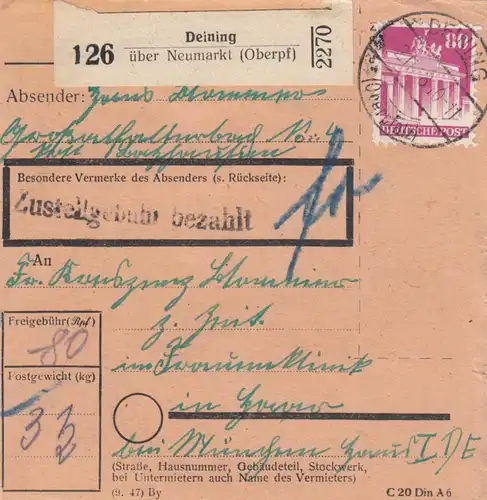 126
Deining
über Neumarkt (Oberpf)
2270
80
DEUTSCHE POST
Absender:
No: 4
Besondere Vermerke des Absenders (s. Rückseite):
Zustellgebühr bezahlt
An
Fr.
z. Zeit.
im Frauenklinik
in Haar
bei München Haus I D/E
Freigebühr (Rpf)
80
Postgewicht (kg)
3
(Straße, Hausnummer, Gebäudeteil, Stockwerk,
bei Untermietern auch Name des Vermieters)
(9. 47) By
C 20 Din A 6